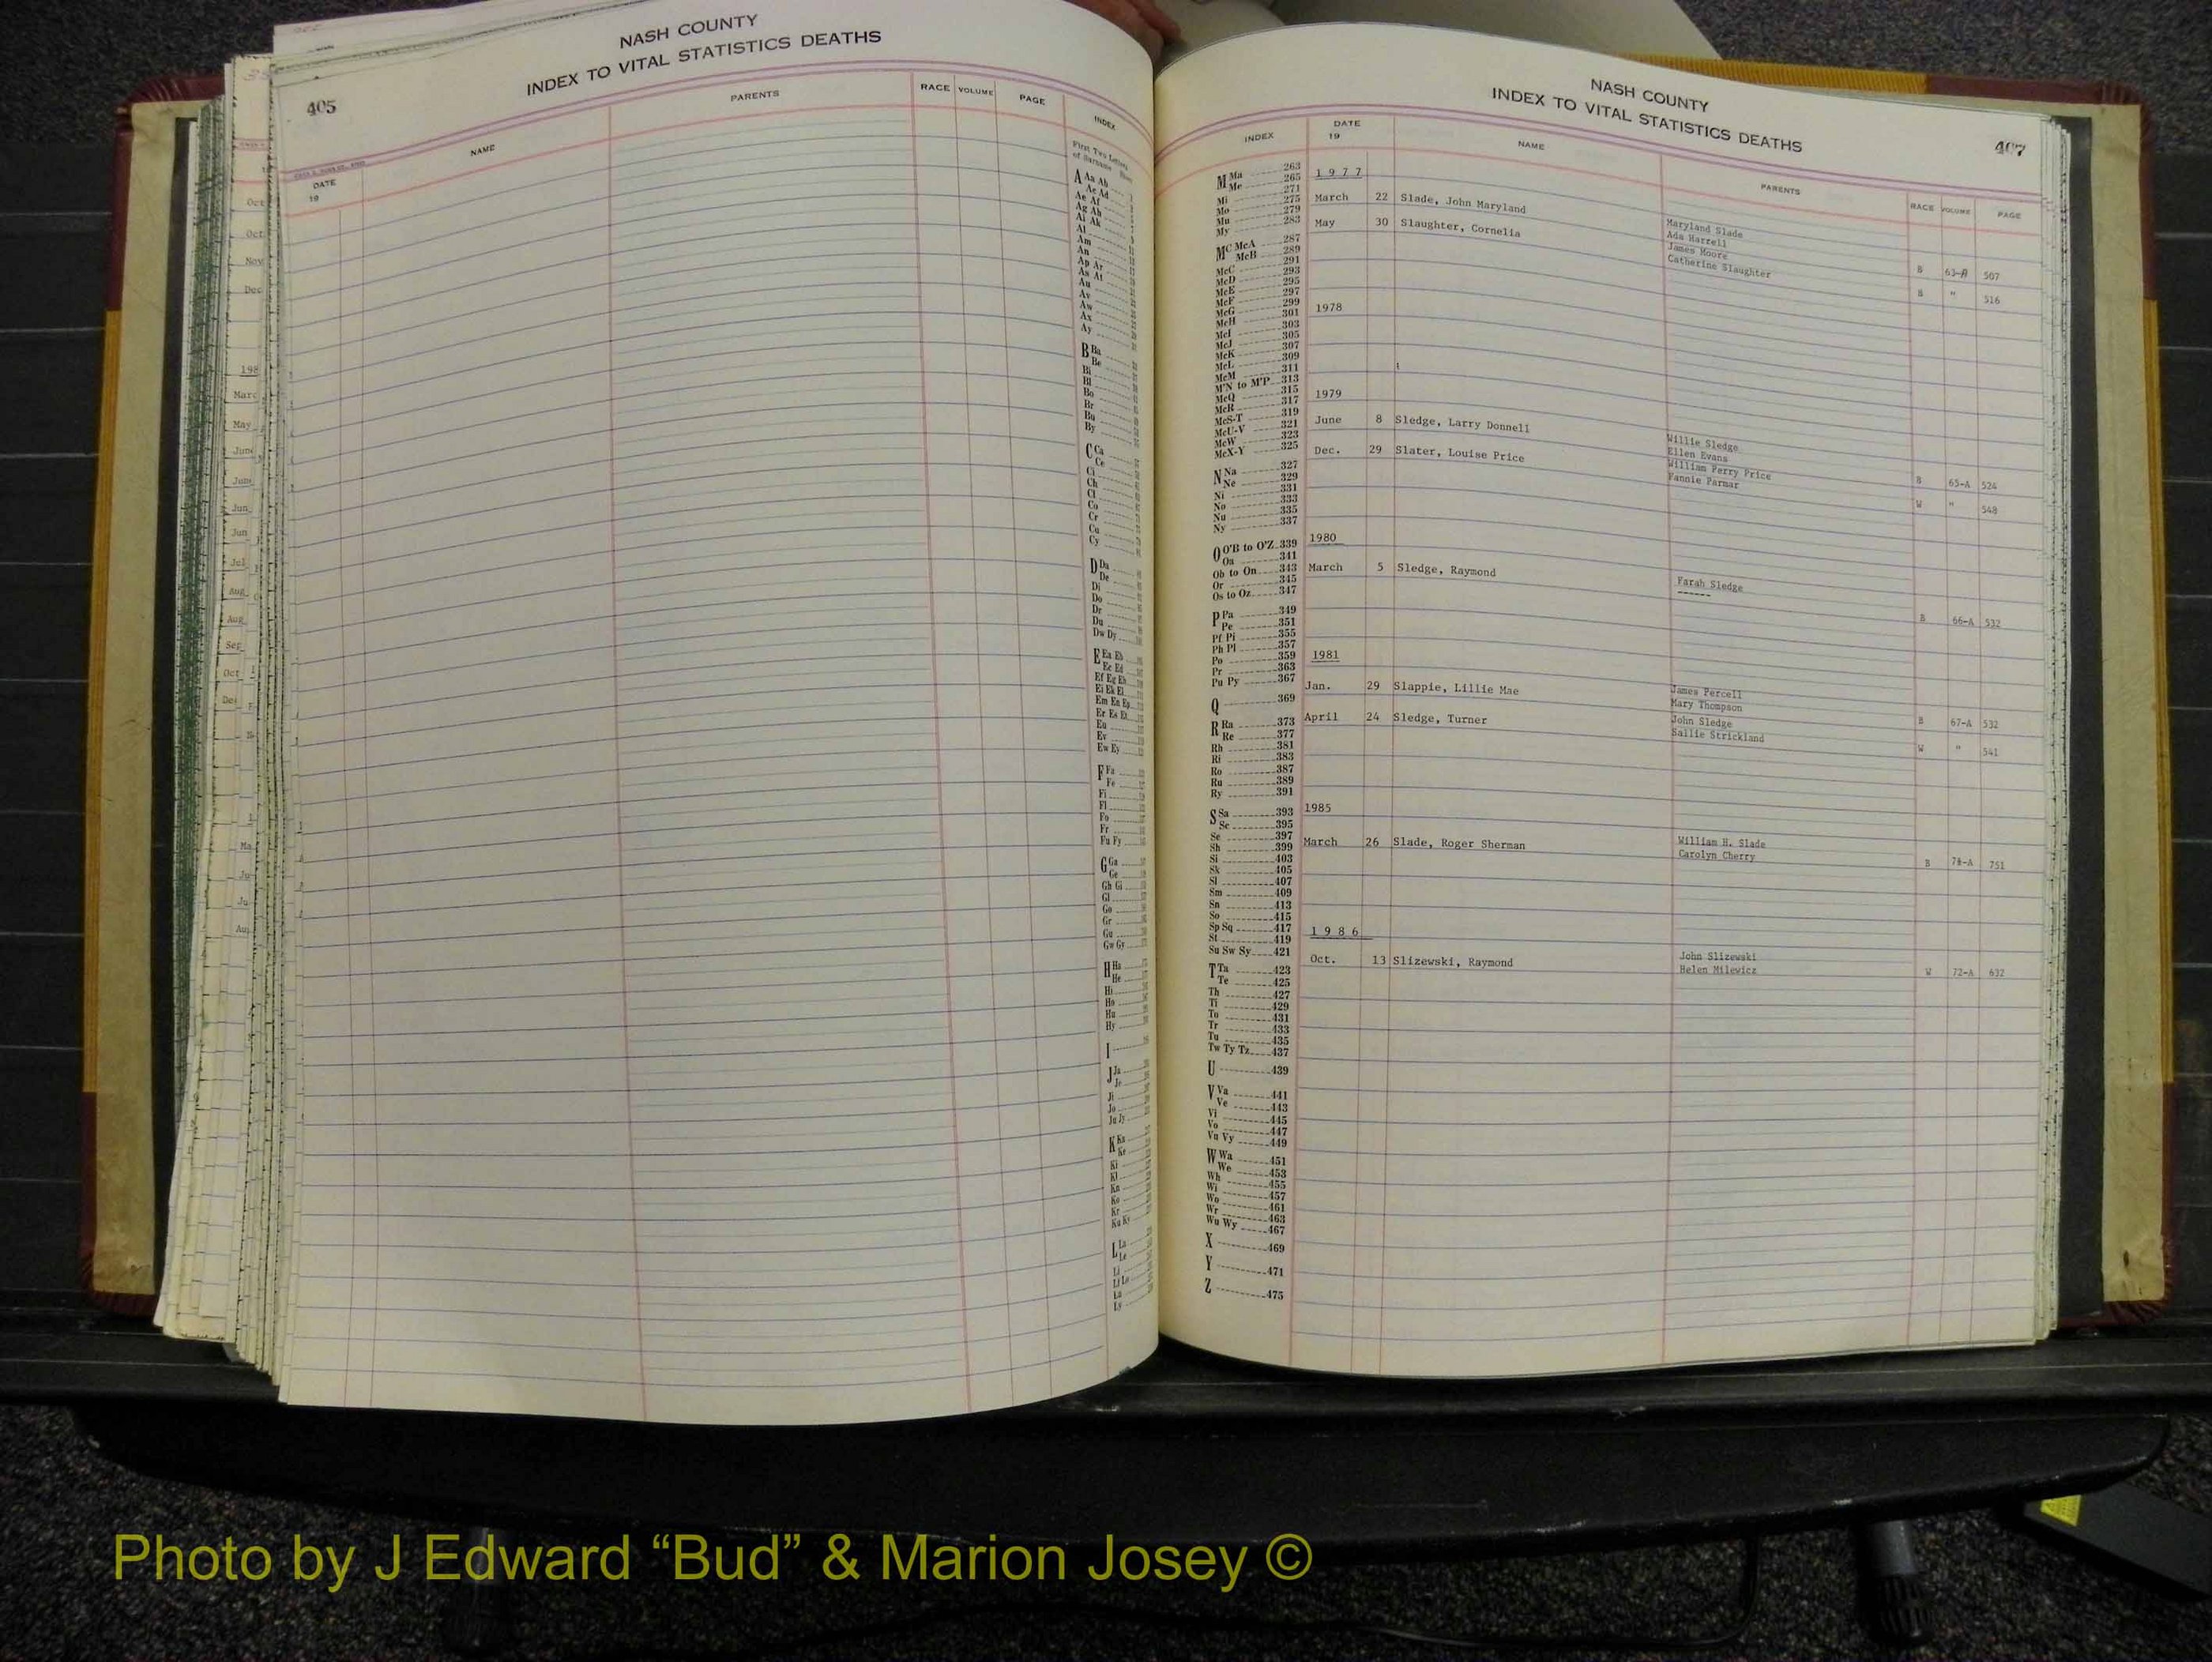 NASH COUNTY
INDEX TO VITAL STATISTICS DEATHS
405
DATE 19 NAME PARENTS RACE VOLUME PAGE INDEX
First Two Letters
of Surname
A Aa Ah
Ae Ad
Ae Af
Ag Ah
Ai Ak
Al
Am
An
Ap Ar
As At
Au
Av
Aw
Ax
Ay
B Ba
Be
Bi
Bl
Bo
Br
Bu
By
C Ca
Ce
Ci
Ch
Cl
Co
Cr
Cu
Cy
D Da
De
Di
Do
Dr
Du
Dw Dy
E Ea Eb
Ec Ed
Ef Eg Eh
Ei Ek El
Em En Ep
Er Es Et
Eu
Ev
Ew Ey
F Fa
Fe
Fi
Fl
Fo
Fr
Fu Fy
G Ga
Ge
Gh Gi
Gl
Go
Gr
Gu
Gw Gy
H Ha
He
Hi
Ho
Hu
Hy
I
J Ja
Je
Ji
Jo
Ju Jy
K Ka
Ke
Ki
Kl
Kn
Ko
Kr
Ku Ky
L La
Le
Li
Ll Lo
Lu
Ly
NASH COUNTY
INDEX TO VITAL STATISTICS DEATHS
407
INDEX DATE 19 NAME PARENTS RACE VOLUME PAGE
M Ma 263
Me 265
Mi 271
Mo 275
Mu 279
My 283
MC McA 287
M' McB 289
McC 291
McD 293
McE 295
McF 297
McG 299
McH 301
McI 303
McJ 305
McK 307
McL 309
McM 311
M'N to M'P 313
McQ 315
McR 317
McS-T 319
McU-V 321
McW 323
McX-Y 325
N Na 327
Ne 329
Ni 331
No 333
Nu 335
Ny 337
O O'B to O'Z 339
Oa 341
Ob to On 343
Or 345
Os to Oz 347
P Pa 349
Pe 351
Pf Pi 355
Ph Pl 357
Po 359
Pr 363
Pu Py 367
Q 369
R Ra 373
Re 377
Rh 381
Ri 383
Ro 387
Ru 389
Ry 391
S Sa 393
Sc 395
Se 397
Sh 399
Si 403
Sk 405
Sl 407
Sm 409
Sn 413
So 415
Sp Sq 417
St 419
Su Sw Sy 421
T Ta 423
Te 425
Th 427
Ti 429
To 431
Tr 433
Tu 435
Tw Ty Tz 437
U 439
V Va 441
Ve 443
Vi 445
Vo 447
Vu Vy 449
W Wa 451
We 453
Wh 455
Wi 457
Wo 461
Wr 463
Wu Wy 467
X 469
Y 471
Z 475
1977
March 22 Slade, John Maryland Maryland Slade
Ada Harrell B 63-A 507
May 30 Slaughter, Cornelia James Moore
Catherine Slaughter B " 516
1978
1979
June 8 Sledge, Larry Donnell Willie Sledge
Ellen Evans B 65-A 524
Dec. 29 Slater, Louise Price William Perry Price
Fannie Parmar W " 548
1980
March 5 Sledge, Raymond Farah Sledge
------ B 66-A 532
1981
Jan. 29 Slappie, Lillie Mae James Percell
Mary Thompson B 67-A 532
April 24 Sledge, Turner John Sledge
Sallie Strickland W " 541
1985
March 26 Slade, Roger Sherman William H. Slade
Carolyn Cherry B 71-A 751
1986
Oct. 13 Slizewski, Raymond John Slizewski
Helen Milewicz W 72-A 632
Photo by J Edward “Bud” & Marion Josey ©